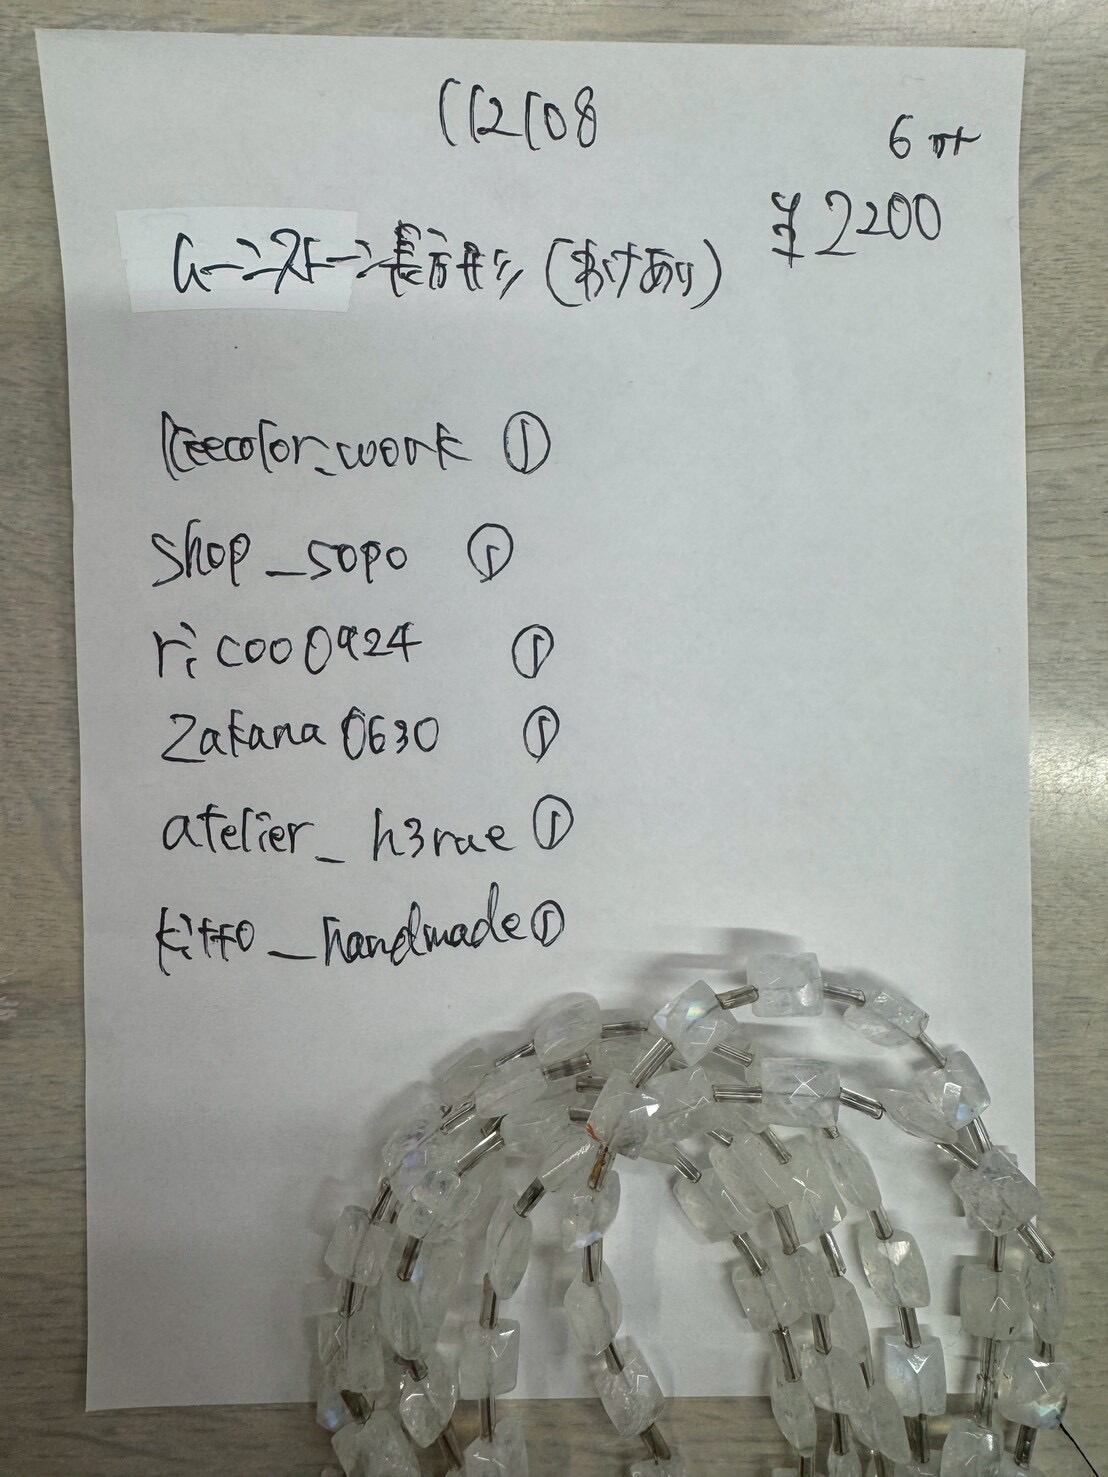 112108
6本
¥2200
ムーンストーン長方形 (わけあり)
kicecolor_work ①
shop_sopo ①
ricoo0924 ①
zakana0630 ①
atelier_h3rue ①
kitto_handmade ①